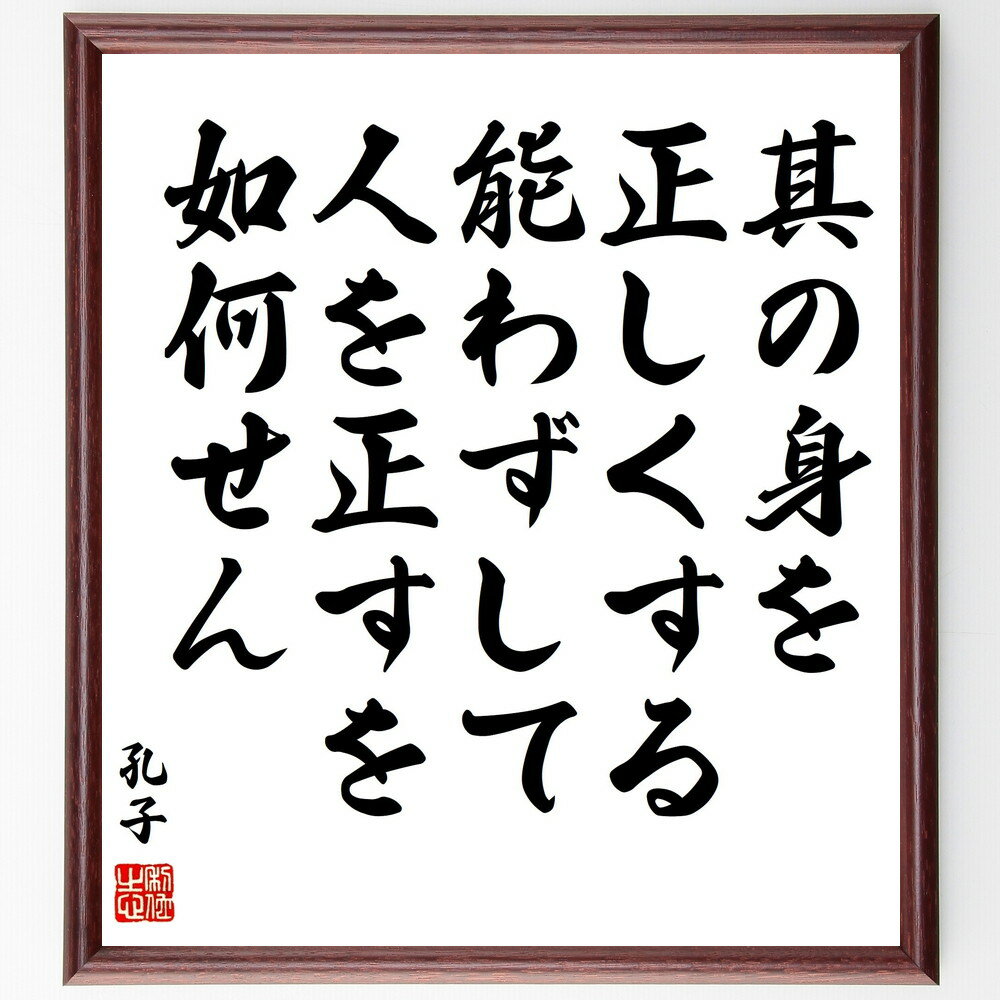 其の身を
正しくする
能わずして
人を正すを
如何せん
孔子